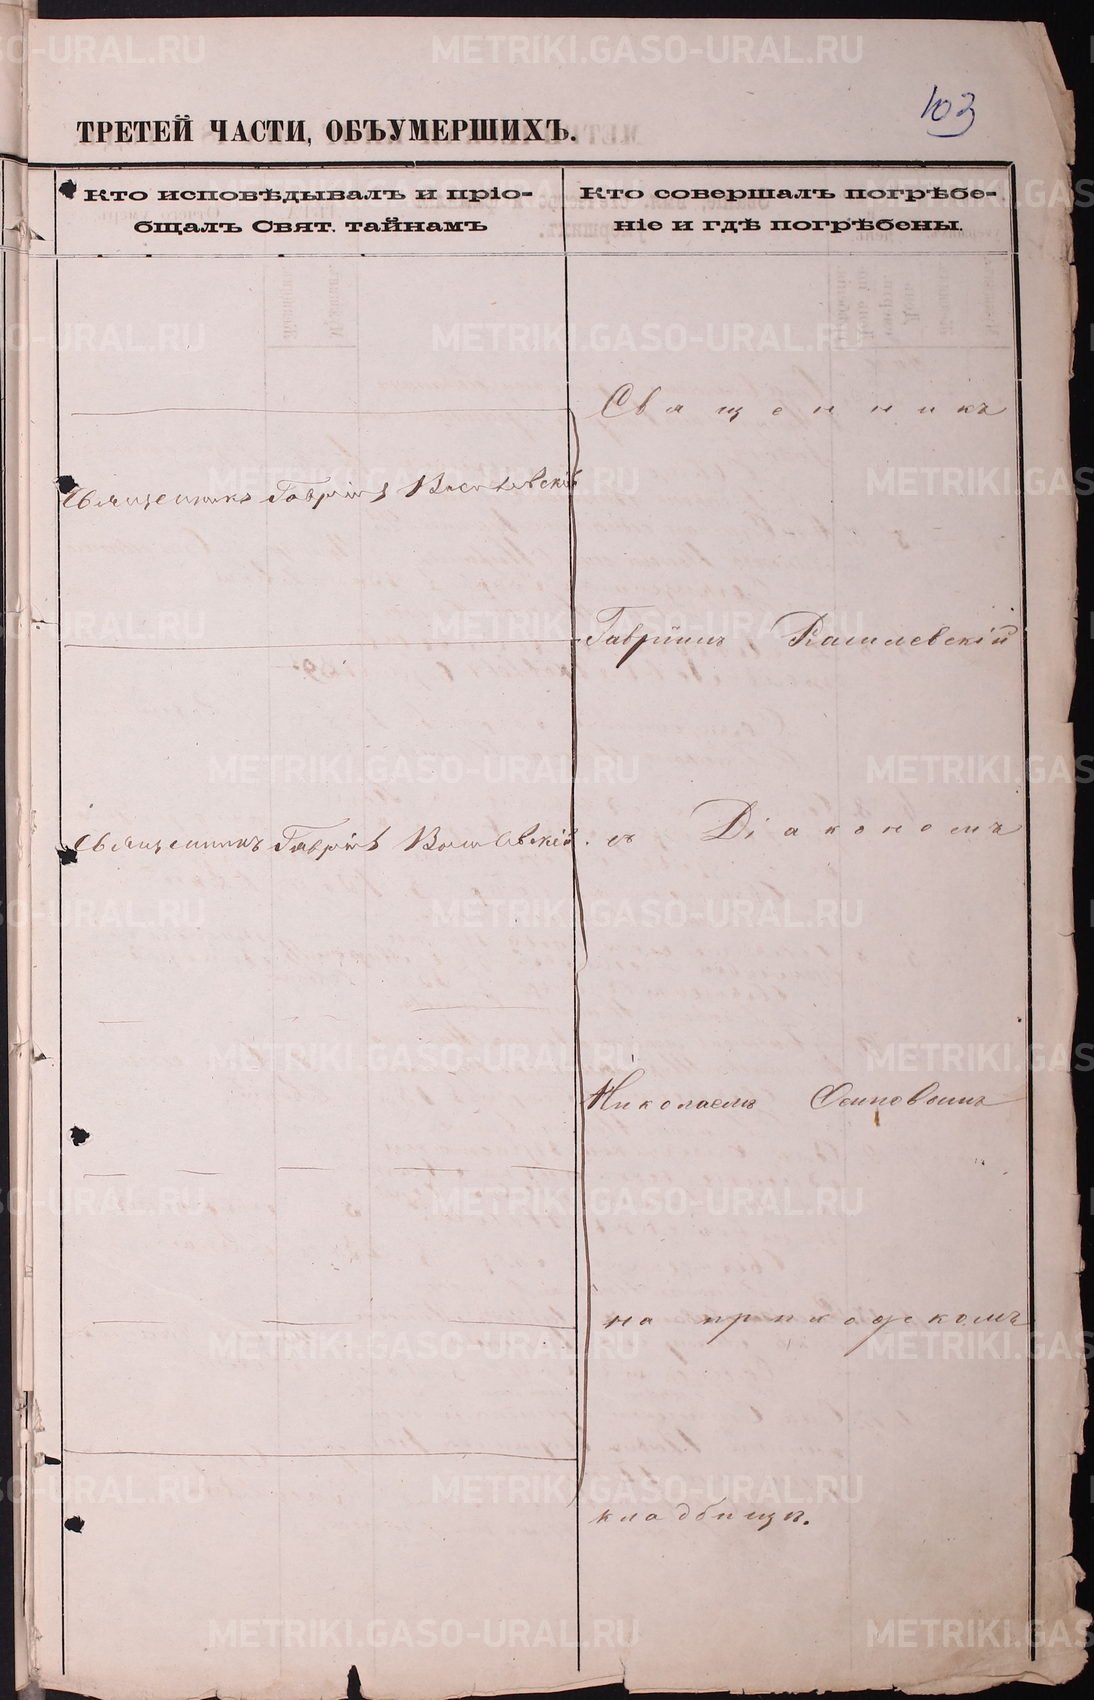 103
ТРЕТЕЙ ЧАСТИ, ОБЪУМЕРШИХЪ.
Кто исповѣдывалъ и прiо-
бщалъ Свят. тайнамъ
Кто совершалъ погрѣбе-
нiе и гдѣ погрѣбены.
Священникъ
Священникъ Гаврiилъ Василевскiй
Гаврiилъ Василевскiй
Священникъ Гаврiилъ Василевскiй
съ Дiакономъ
Николаемъ Осиповымъ
на приходскомъ
кладбищѣ.
METRIKI.GASO-URAL.RU